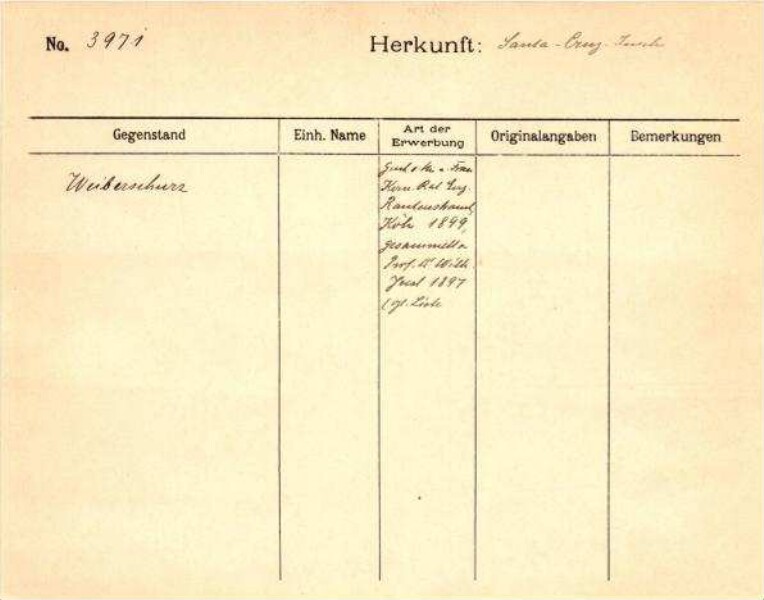 No. 3971
Herkunft: Santa-Cruz-Inseln
Gegenstand
Einh. Name
Art der
Erwerbung
Originalangaben
Bemerkungen
Weiberschurz
Frau
Kom. Rat Eug.
Rautenstrauch,
Köln 1899,
gesammelt v.
Prof. Dr Wilh.
Joest 1897
Liste